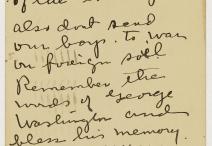 of the
also dont send
our boys. to war
on foreign soil
Remember the
words of George
Washington and
bless his memory.